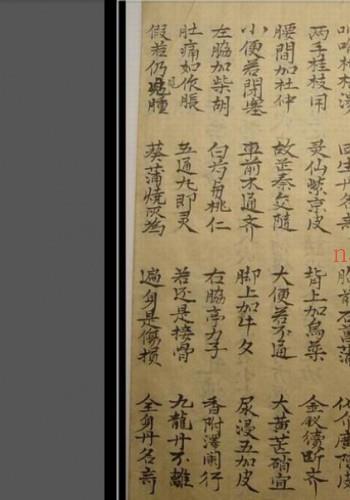 兩手桂枝用 灵仙紫京皮 背上加烏藥 金釵續断齐
腰間加杜仲 故芷秦交隨 大便若不通 大黄苦硝宜
小便若閉塞 車前木通齐 脚上加牛夕 尿浸五加皮
左脇加柴胡 白芍桃仁 右脇亭力子 香附澤闌行
肚痛如依脹 五通丸即灵 若还是接骨 九龍丹不離
假若仍见腫 葵蒲燒灰為 遍身是傷损 全身丹名奇